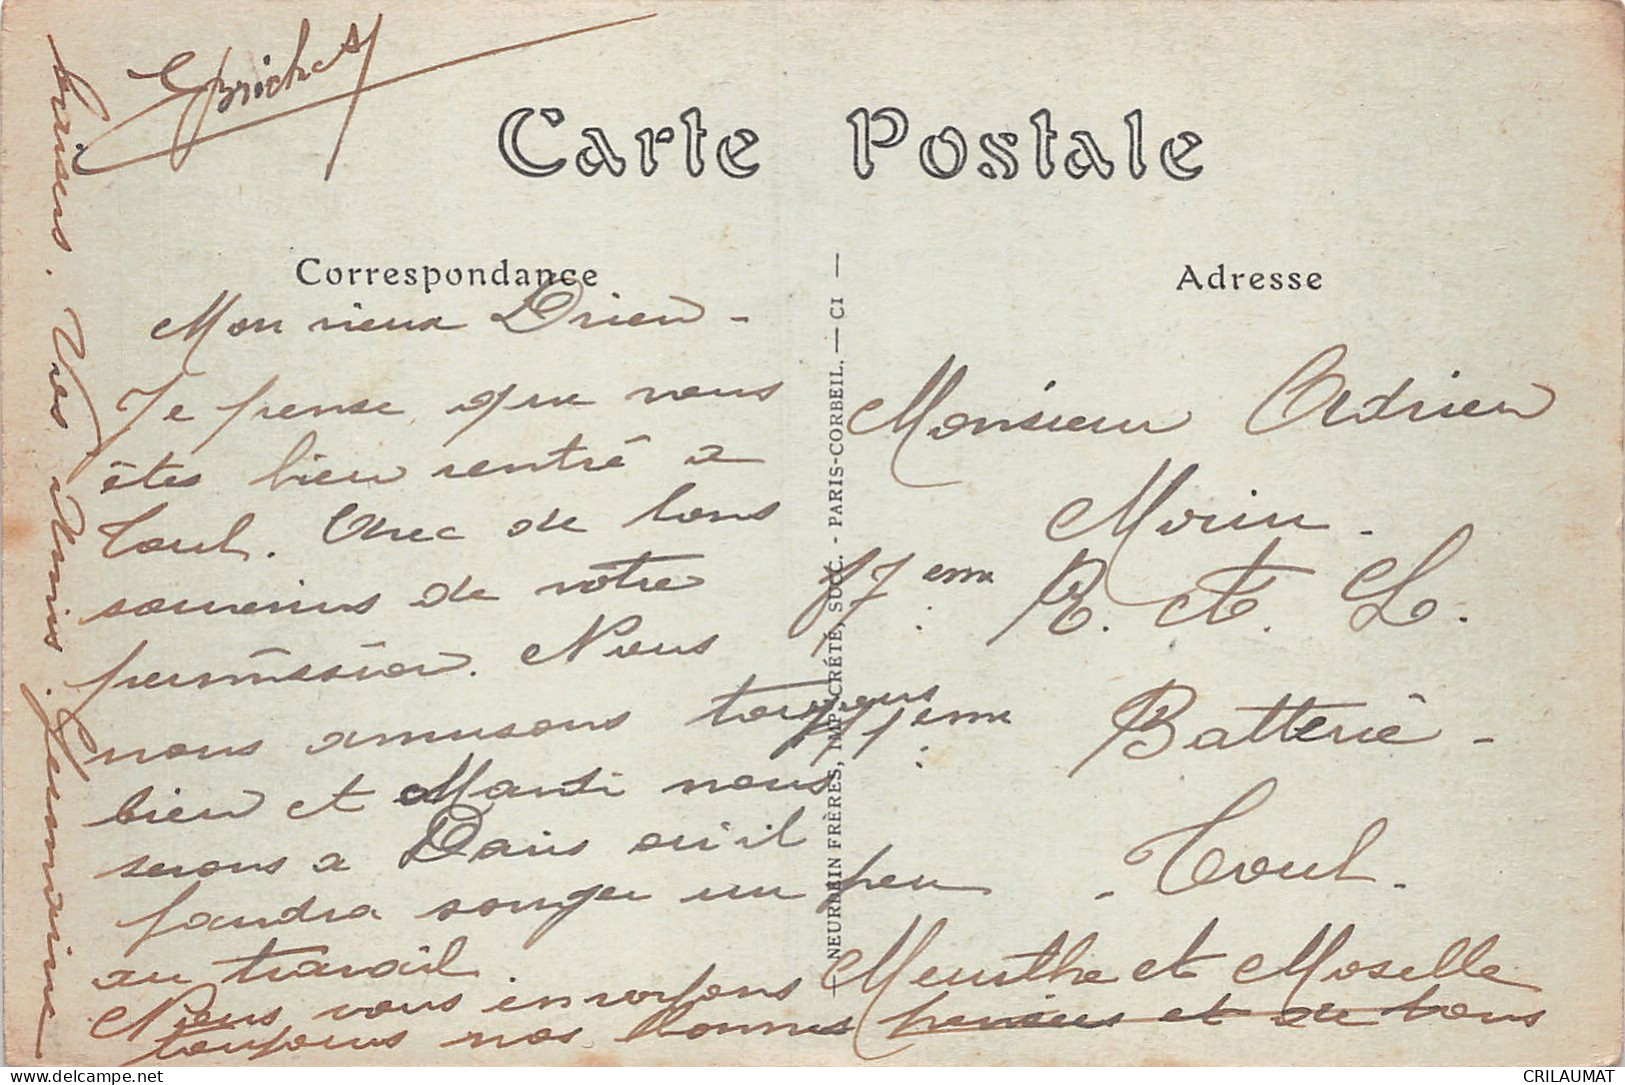 Carte Postale
Correspondance
Mon vieux Drien -
Je pense que vous
êtes bien rentré a
Toul. Avec de bons
souvenirs de votre
permission. Nous
nous amusons toujours
bien et Mardi nous
serons a Paris où il
faudra songer un peu
au travail.
Nous vous envoyons
toujours nos bonnes pensées et de bons
baisers. Vos Amis. Germaine
Brichet
NEURDEIN FRÈRES, IMP. CRÉTÉ, SUCC. - PARIS-CORBEIL. — CI —
Adresse
Monsieur Adrien
Morin -
17ème R. A. L.
11ème Batterie -
- Toul -
Meurthe et Moselle
CRILAUMAT